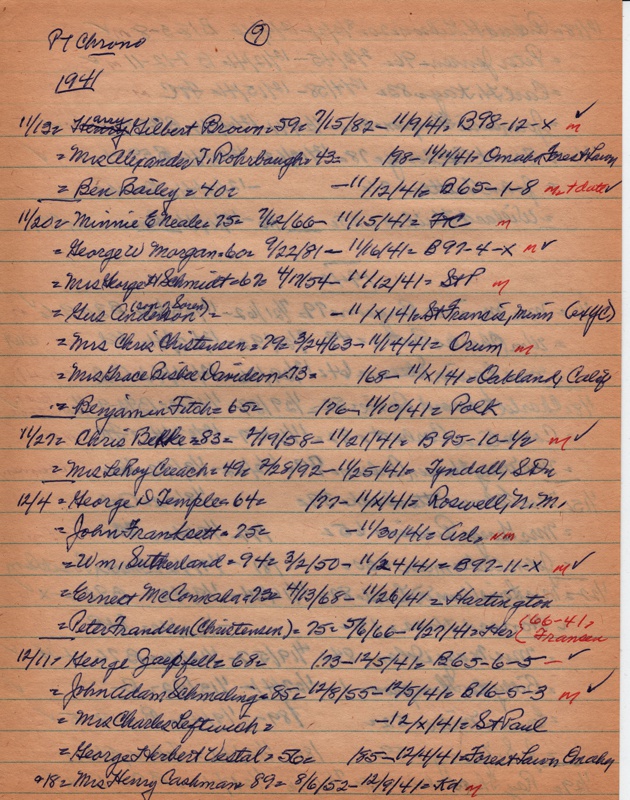 Pt Chrono 9
1941
11/13 = Harry Gilbert Brown = 59 = 7/15/82 - 11/9/41 = B98-12-X m ✓
= Mrs Alexander T. Rohrbaugh = 43 = 198 - 11/11/41 = Omaha Forest Lawn
= Ben Bailey = 40 = - 11/12/41 = B65-1-8 m + date ✓
11/20 = Minnie E Neale = 75 = 7/12/66 - 11/15/41 = FC m
= George W Morgan = 60 = 9/22/81 - 11/16/41 = B97-4-X m ✓
= Mrs George H Schmidt = 87 = 4/17/54 - 11/12/41 = St P m
= Gus Anderson (son of Soren) = - 11/X/41 = St Francis, Minn
= Mrs Chris Christensen = 79 = 3/24/63 - 11/14/41 = Orum m
= Mrs Grace Bisbee Davidson = 73 = 168 - 11/X/41 = Oakland, Calif
= Benjamin Fitch = 65 = 176 - 11/10/41 = Polk
11/27 = Chris Bekke = 83 = 2/19/58 - 11/21/41 = B95-10-1/2 m ✓
= Mrs LeRoy Creach = 49 = 2/28/92 - 11/25/41 = Tyndall, S.Da
12/4 = George D Temple = 64 = 177 - 11/X/41 = Roswell, N.M.
= John Franksett = 75 = - 11/30/41 = Arl. nm
= Wm. Sutherland = 94 = 3/2/50 - 11/24/41 = B97-11-X m ✓
= Earnest McConnaha = 73 = 4/13/68 - 11/26/41 = Hartington
= Peter Frandsen (Christensen) = 75 = 5/6/66 - 11/27/41 = Her (66-41 = Fransen
12/11 = George Jaepfell = 68 = 173 - 12/5/41 = B65-6-5 - ✓
= John Adam Schmaling = 85 = 12/8/55 - 12/5/41 = B16-5-3 m ✓
= Mrs Charles Leftwich = - 12/X/41 = St Paul
= George Herbert Vestal = 56 = 185 - 12/4/41 = Forest Lawn Omaha
18 = Mrs Henry Cashman 89 = 8/6/52 - 12/9/41 = Kd m